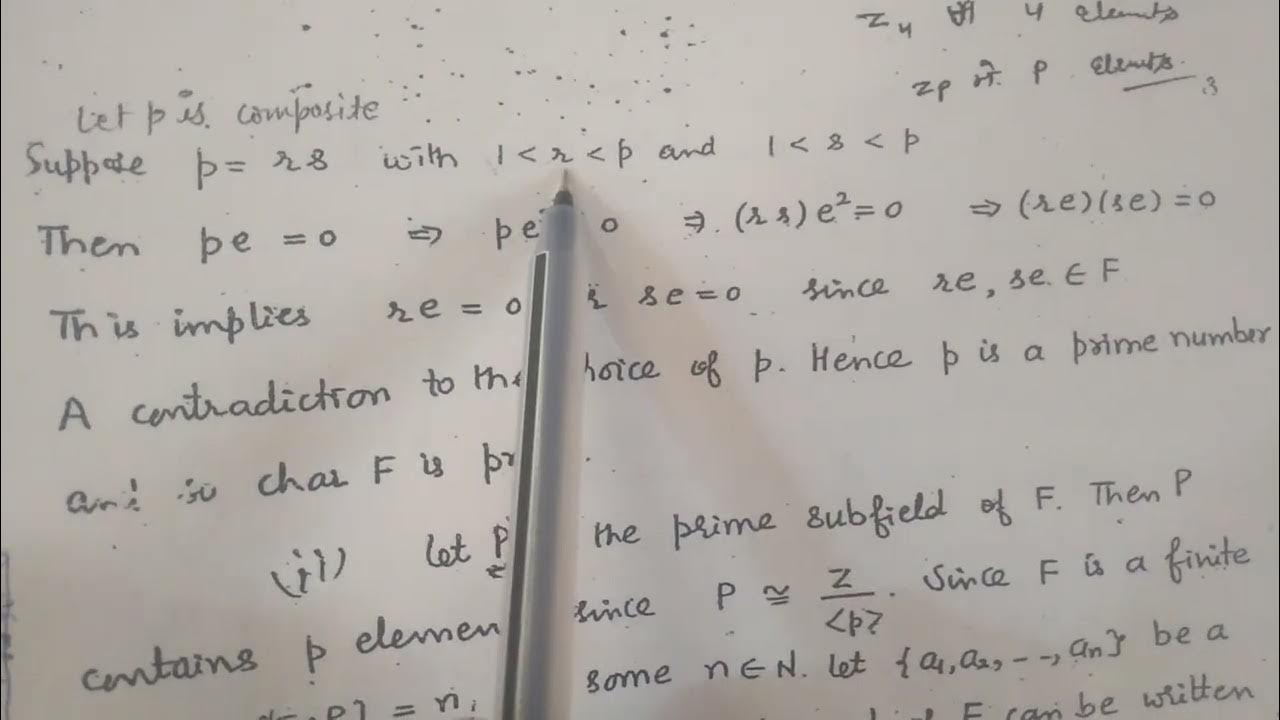 Z4 4 elements
Zp p elements.
Let p is composite
Suppose p = rs with 1 < r < p and 1 < s < p
Then pe = 0 ⇒ pe 0 ⇒ (rs)e² = 0 ⇒ (re)(se) = 0
This implies re = 0 se = 0 since re, se ∈ F
A contradiction to the hoice of p. Hence p is a prime number
and so char F is pr .
(ii) Let P the prime subfield of F. Then P
contains p elemen since P ≅ Z/<p>. Since F is a finite
P] = n, some n ∈ N. Let {a1, a2, --, an} be a
F can be written